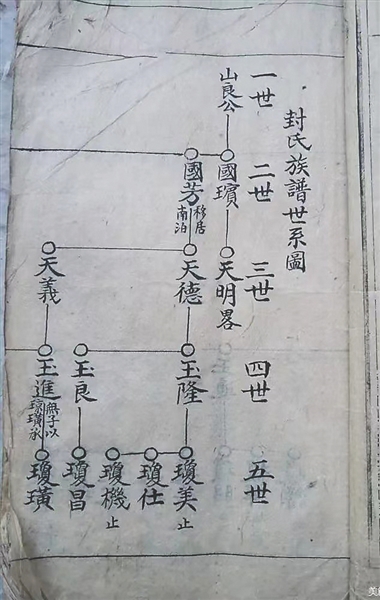 封氏族譜世系圖
一世
二世
三世
四世
五世
山良公
國瓆
天明畧
國芳
移居
南泊
天德
玉隆
瓊美
止
瓊仕
瓊機
止
玉良
瓊昌
天義
玉進
無子以
瓊璜承
瓊璜
美